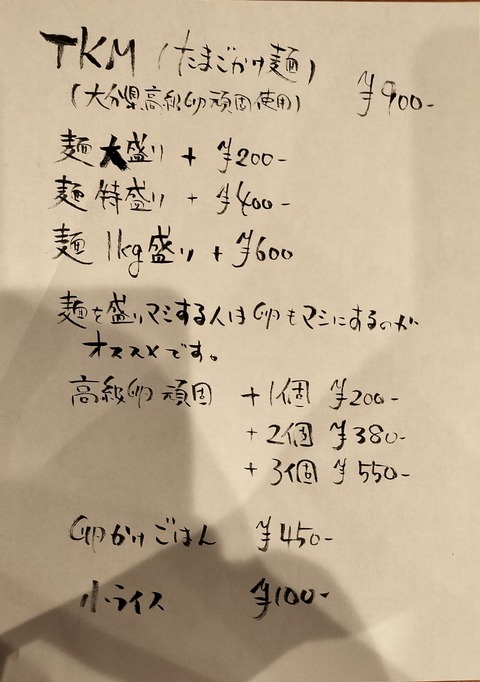 TKM (たまごかけ麺)
(大分県高級卵頑固使用) ¥900-
麺 大盛り + ¥200-
麺 特盛り + ¥400-
麺 1kg盛り + ¥600
麺を盛りマシする人は卵もマシにするのが
オススメです。
高級卵 頑固 +1個 ¥200-
+2個 ¥380-
+3個 ¥550-
卵かけごはん ¥450-
小ライス ¥100-